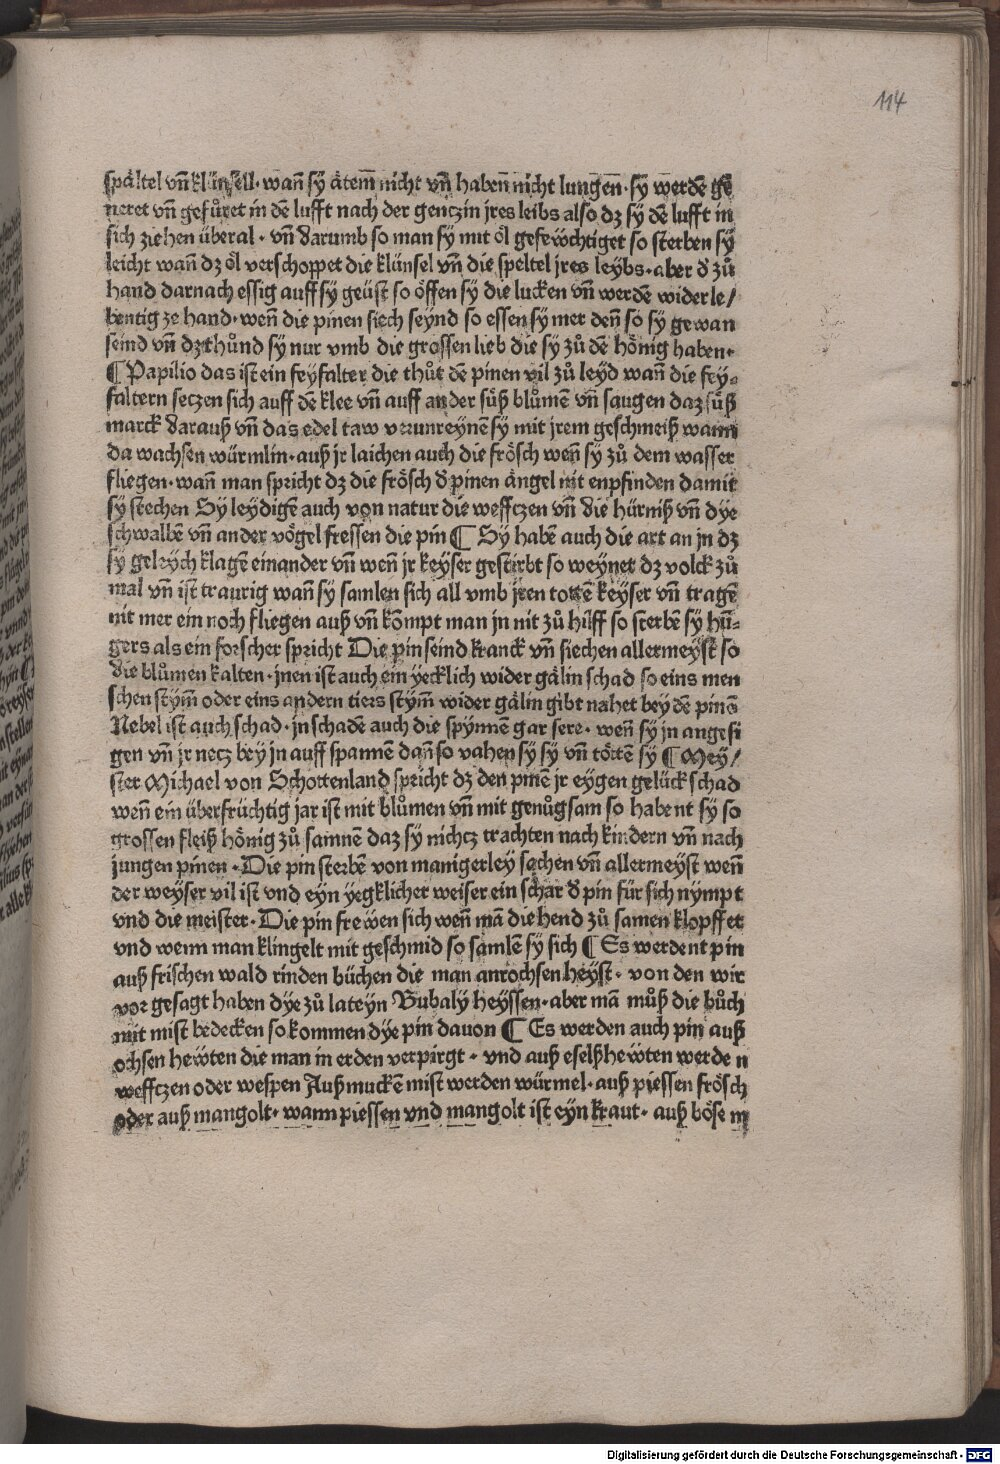 114
spältel vñ klünsell· wañ sÿ åtem̄ nicht vñ haben̄ nicht lungen̄· sÿ werdē ge
neret vñ gefůret in dē lufft nach der gentzin jres leibs also dz sÿ dē lufft in
sich ziehen überal · vñ darumb so man sÿ mit öl gefewchtiget so sterben sÿ
leicht wañ dz öl verschoppet die klünsel vñ die speltel jres leÿbs· aber d̕ zů
hand darnach essig auff sÿ geüst so öffen sÿ die lucken vñ werdē wider le/
bentig ze hand· weñ die pinen siech seÿnd so essen sÿ mer deñ so sÿ gewan
seind vñ dz thůnd sÿ nur vmb die grossen lieb die sÿ zů dē hönig haben·
¶ Papilio das ist ein feÿfalter die thůt dē pinen vil zů leÿd wañ die feÿ⸗
faltern seczen sich auff dē klee vñ auff ander sůß blůmen vñ saugen daz sůß
marck darauß vñ das edel taw verunreÿnen sÿ mit jrem geschmeiß wann
da wachsen würmlin· auß jr laichen auch die frösch weñ sÿ zů dem wasser
fliegen· wañ man spricht dz die frösch d̕ pinen ängel nit enpfinden damit
sÿ stechen Sÿ leÿdigē auch von natur die weffczen vñ die hürniß vñ dÿe
schwalbē vñ ander vögel fressen die pin ¶ Sÿ habē auch die art an jn dz
sÿ geleÿch klagē einander vñ weñ jr keÿser gestirbt so weÿnet dz volck zů
mal vñ ist traurig wañ sÿ samlen sich all vmb jren totē keÿser vñ tragē
nit mer ein noch fliegen auß vñ kompt man jn nit zů hilff so sterbē sÿ hū⸗
gers als ein forscher spricht Die pin seind kranck vñ siechen allermeÿst so
die blůmen kalten· jnen ist auch ein ÿecklich wider gälin schad so eins men
schen stÿm̄ oder eins andern tiers stÿm̄ wider gälin gibt nahet beÿ dē pinē
Nebel ist auch schad· jn schadē auch die spÿnnen gar sere· weñ sÿ jn angesi
gen vñ jr netz beÿ jn auff spannen dañ so vahen sÿ sÿ vñ tötē sÿ ¶ Meÿ/
ster Michael von Schottenland spricht dz den pinē jr eÿgen gelück schad
weñ ein überfrüchtig jar ist mit blůmen vñ mit genůgsam so habent sÿ so
grossen fleiß hönig zů samnen daz sÿ nichcz trachten nach kindern vñ nach
jungen pinen · Die pin sterbē von manigerleÿ sachen vñ allermeÿst weñ
der weÿser vil ist vnd eÿn ÿegklicher weiser ein schar d̕ pin für sich nÿmpt
vnd die meister· Die pin frewen sich weñ mā die hend zů samen klopffet
vnd wenn man klingelt mit geschmid so samlē sÿ sich ¶ Es werdent pin
auß frischen wald rinden büchen die man anrochsen heÿst· von den wir
vor gesagt haben dÿe zů lateÿn Bubalÿ heÿssen· aber mā můß die bůch
mit mist bedecken so kommen dÿe pin dauon ¶ Es werden auch pin auß
ochsen hewten die man in erden verpirgt · vnd auß eselßhewten werden
weffczen oder wespen Auß muckē mist werden würmel· auß piessen frösch
oder auß mangolt· wann piessen vnd mangolt ist eÿn kraut· auß böse m
Digitalisierung gefördert durch die Deutsche Forschungsgemeinschaft - DFG